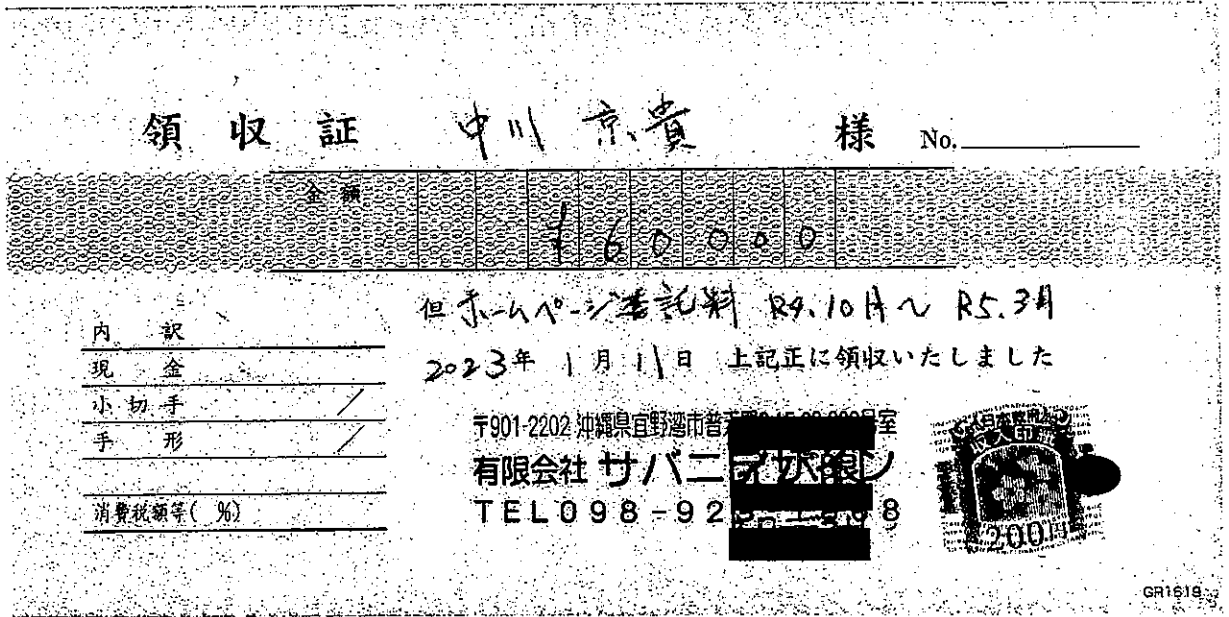 領収証 中川 京貴 様 No.
金額
¥60000
但 ホームページ委託料 R4.10月～R5.3月
内訳
現金
2023年1月11日 上記正に領収いたしました
小切手
手形
〒901-2202 沖縄県宜野湾市普 室
有限会社 サバニ
TEL098-92 8
消費税額等( %)
200円
GR1619